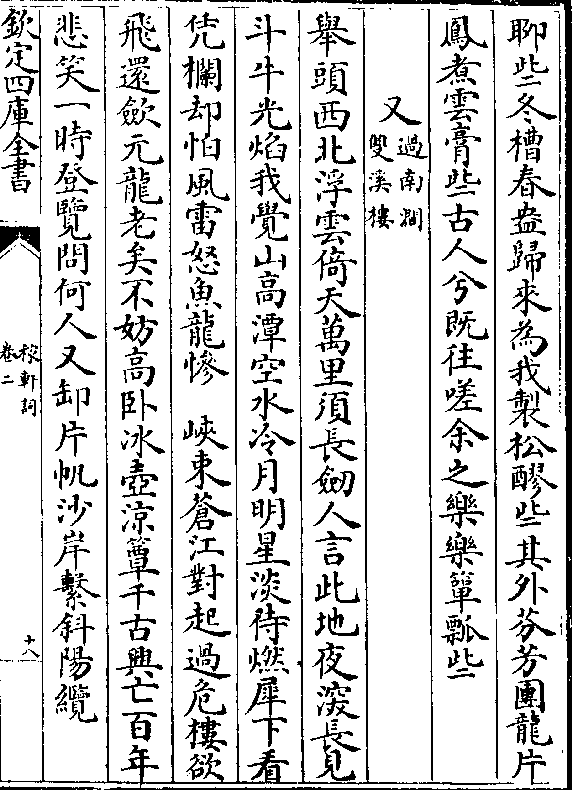 聊些冬槽春盎歸來為我製松醪些其外芬芳團龍片
鳳煮雲膏些古人兮既往嗟余之樂樂簞瓢些
又過南澗雙溪樓
舉頭西北浮雲倚天萬里須長劒人言此地夜深長見
斗牛光焰我覺山高潭空水冷月明星淡待燃犀下看
凭欄却怕風雷怒魚龍慘　峽束蒼江對起過危樓欲
飛還歛元龍老矣不妨高卧冰壺涼簟千古興亡百年
悲笑一時登覽問何人又卸片帆沙岸繫斜陽纜
欽定四庫全書
稼軒詞
卷二
十八